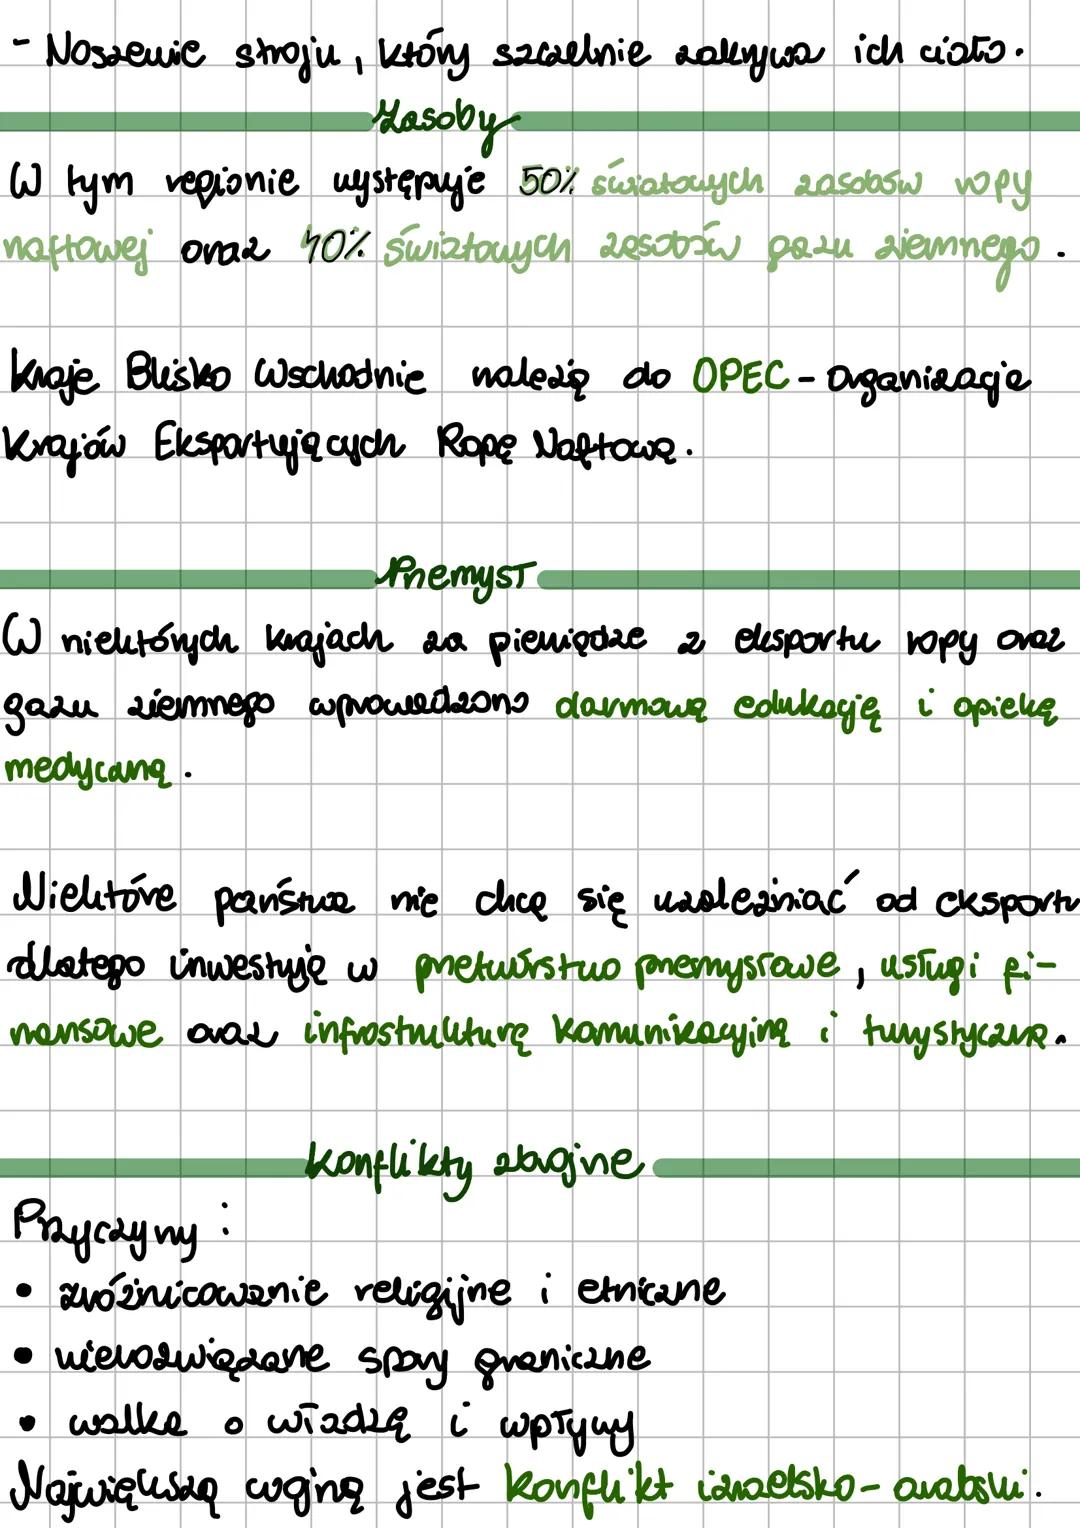 - Noszenie stroju, który szczelnie zakrywa ich ciało.
Zasoby
W tym regionie występuje 50% światowych zasobów ropy
naftowej oraz 40% światowych zasobów gazu ziemnego.
Kraje Blisko Wschodnie należą do OPEC - Organizacje
Krajów Eksportujących Ropę Naftową.
Przemysł
W niektórych krajach za pieniądze z eksportu ropy oraz
gazu ziemnego wprowadzono darmową edukację i opiekę
medyczną.
Niektóre państwa nie chcą się uzależniać od eksportu
dlatego inwestują w przetwórstwo przemysłowe, usługi fi-
nansowe oraz infrostrukturę komunikacyjną i turystyczną.
Konflikty zbrojne
Przyczyny:
• zróżnicowanie religijne i etniczne
• nierozwiązane spory graniczne
• walka o władzę i wpływy
Największą wojną jest konflikt izraelsko-arabski.